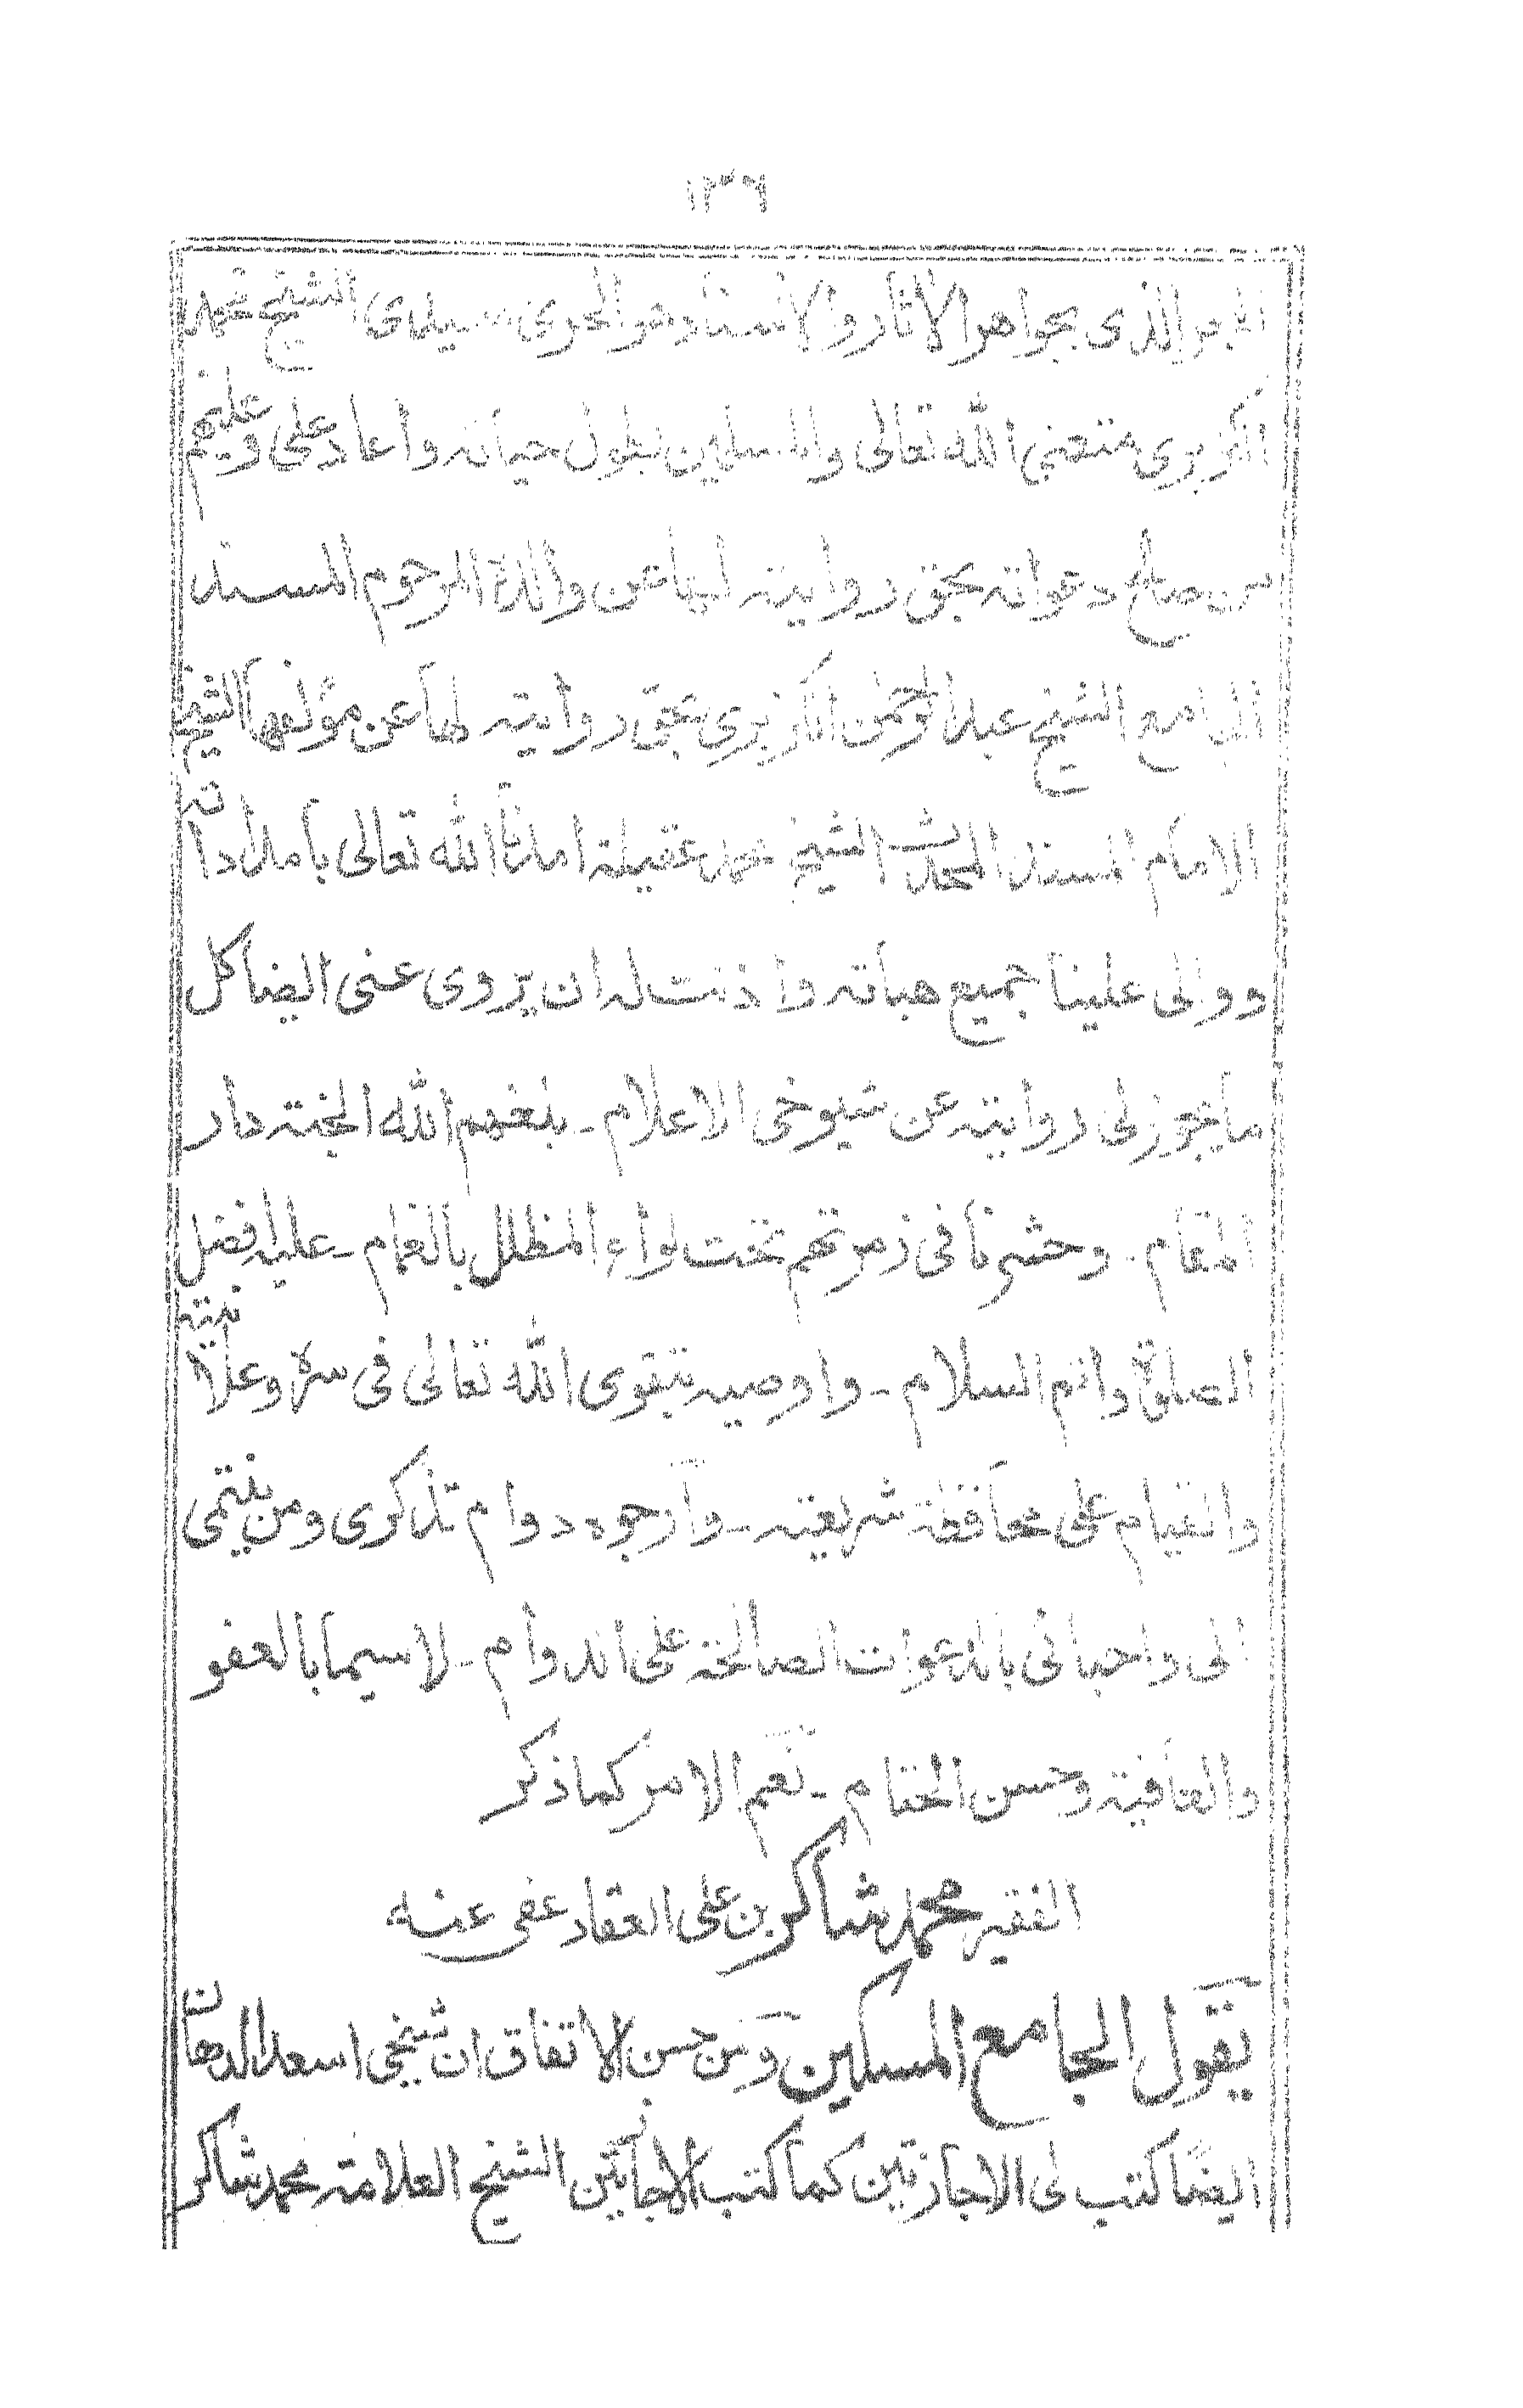 ١٣٦
البحر الذى بجواهر الآثار والاسناد هو الحرى سيدى الشيخ محمد
الكزبرى متعنى الله تعالى والمسلمين بطول حياته واعاد على وعليهم
من صالح دعواته بحق روايته لها عن والده المرحوم المسند
الجامع الشيخ عبد الرحمٰن الكزبري بحق روايته لها عن مؤلفها الشيخ
الامام المسند المحدث الشيخ محمد عقيلة امدنا الله تعالى بامداداته
ووالى علينا جميع هباته واذنت له ان يروى عنى ايضا كل
ما يجوز لى روايته عن شيوخى الاعلام - بلغهم الله الجنة دار
المقام - وحشرنا فى زمرتهم تحت لواء المظلل بالغمام - عليه افضل
الصلوة واتم السلام - واوصيه بتقوى الله تعالى فى سره وعلانيته
والقيام على محافظة شريعته - وآرجوه دوام تذكرى ومن ينتمى
الى واحبائى بالدعوات الصالحة على الدوام - لا سيما بالعفو
والعافية وحسن الختام - نعم الامر كما ذكر
الفقير محمد شاكر بن على العقاد عفى عنه
يقول الجامع المسكين ومن حسن الاتفاق ان شيخى اسعد الدهان
ايضًا كتب لى الاجازتين كما كتب الاجازتين الشيخ العلامة محمد شاكر